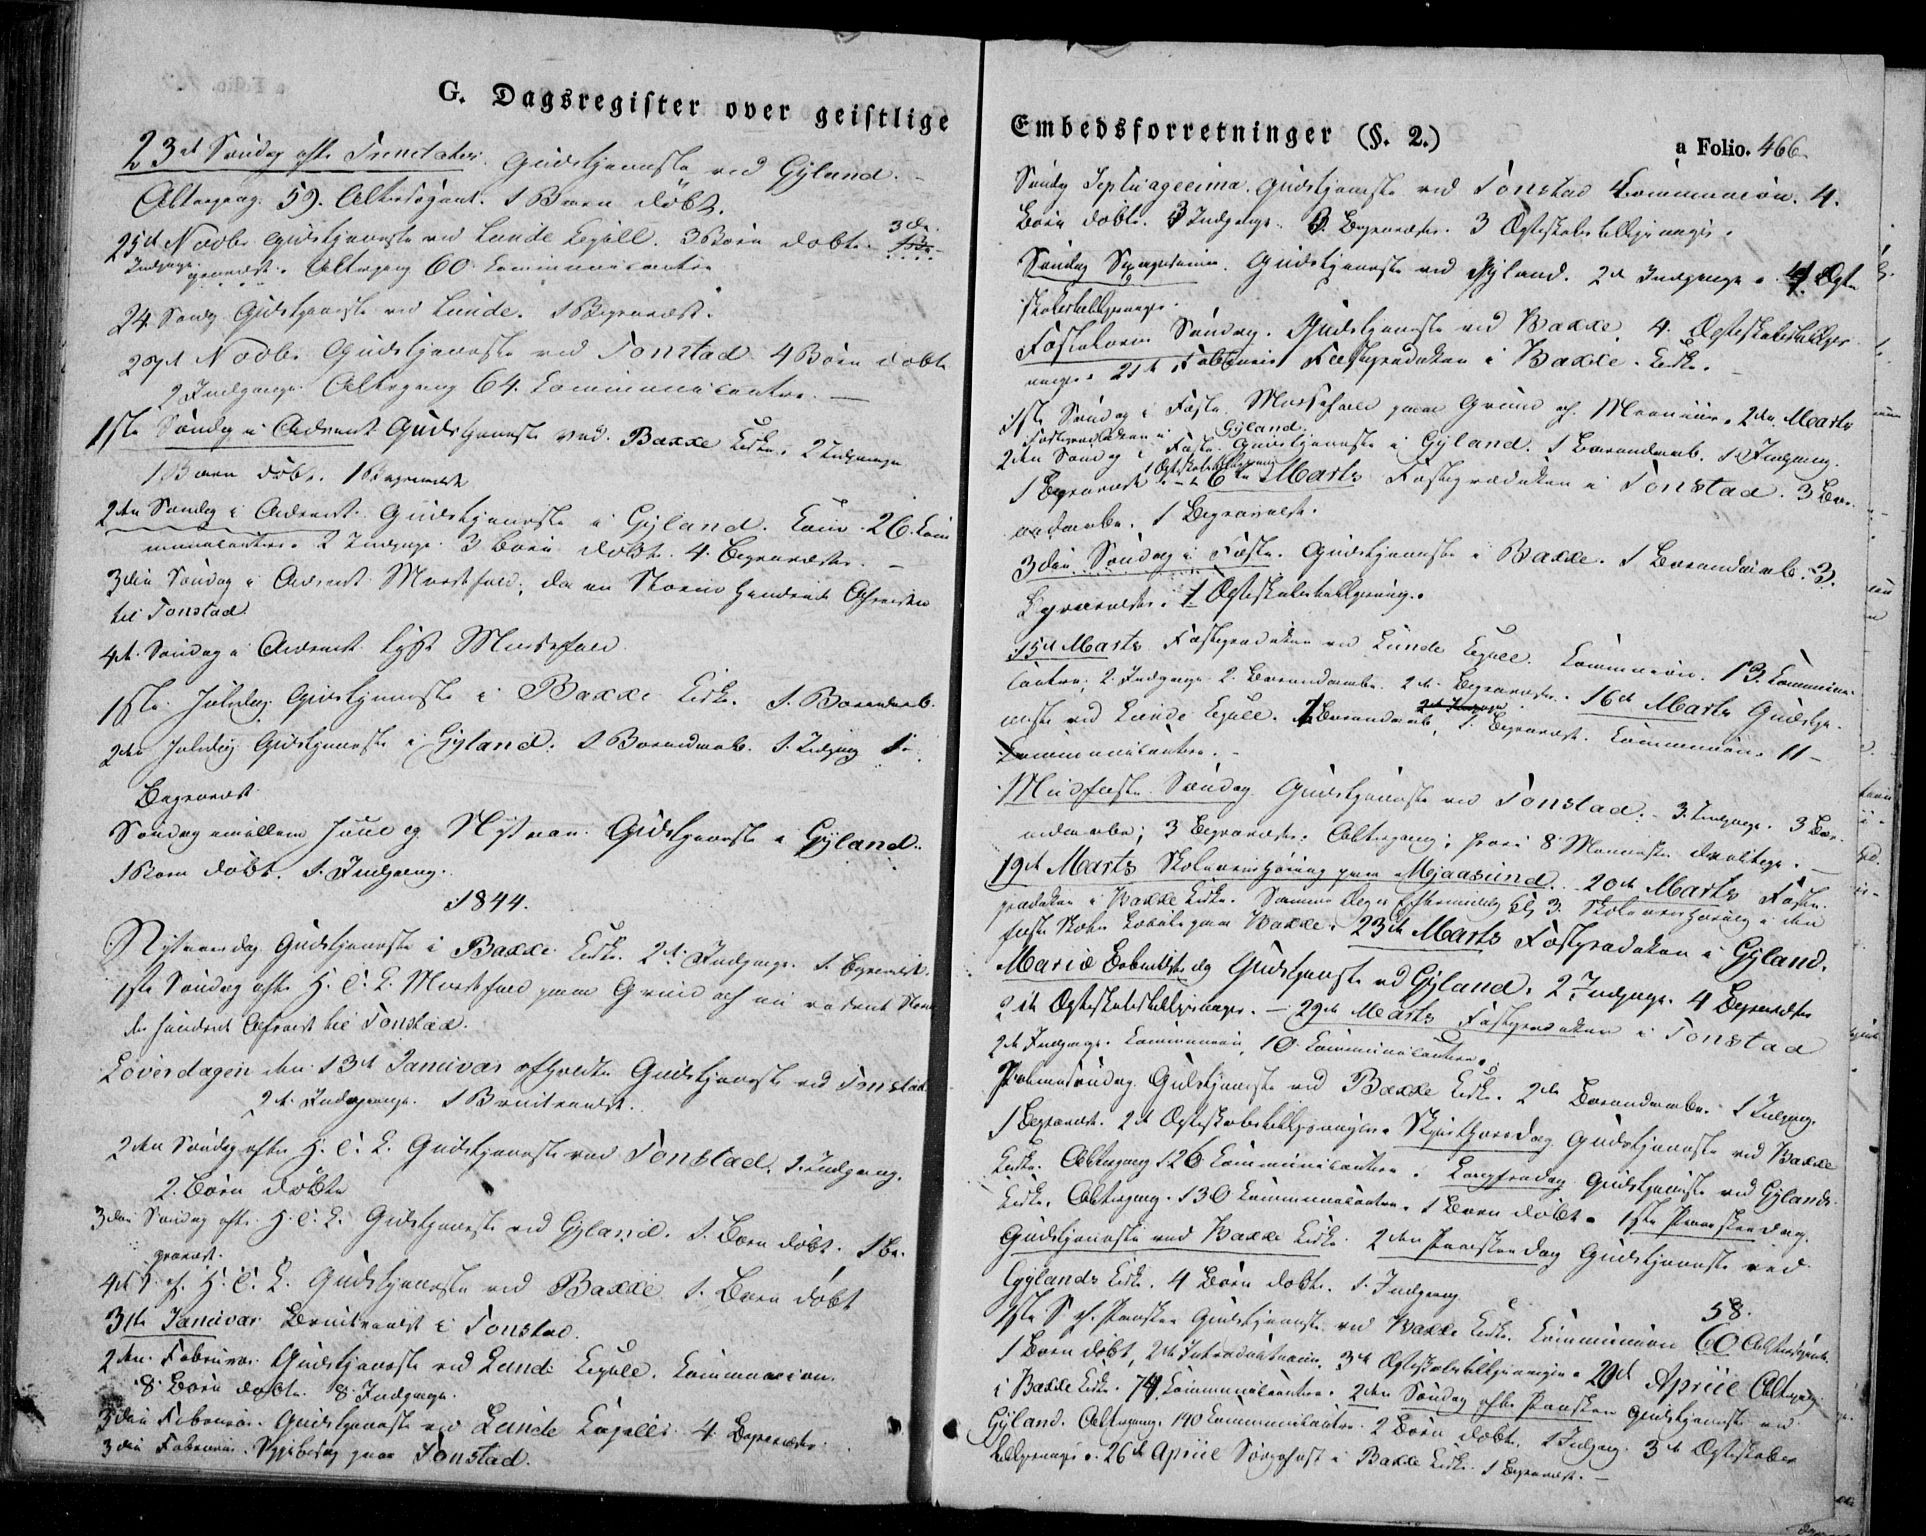 G. Dagsregister over geistlige
23de Søndag efter Trinitatis. Gudstjeneste ved Gyland. –
Altergang. 59. Altersgæst. 1 Barn döbt.
25de Novbr Gudstjeneste ved Lunde Capell. 3 Börn döbte. 3de
Indgange. Altergang 60 Communicanter
24 Søndag Gudstjeneste ved Lunde. 1 Begravelse.
Novbr Gudstjeneste ved Tonstad. 4 Börn döbte
2 Indgange. Altergang 64. Communicantere. —
1ste Søndag i Advent Gudstjeneste ved Bakke Kirke. 2 Indgange
1 Barn döbt. 1 Begravelse
2den Søndag i Advent. Gudstjeneste i Gyland. Com. 26. Com
municantere. 2 Indgange. 3 Börn döbte. 4. Begravelser. –
3die Søndag i Advent Messefald, da en Storm hindrede Afreisen
til Tonstad.
4de Søndag i Advent lyst Messefald
1ste Juledag Gudstjeneste i Bakke Kirke. 1. Barnedaab.
2den Juledag Gudstjeneste i Gyland. 1 Barnedaab. 1. Indgang 1.
Begravelse
Søndag imellem Juul og Nytaar. Gudstjeneste i Gyland.
1 Barn döbt. 1. Indgang.
1844.
Nytaarsdag Gudstjeneste i Bakke Kirke. 2de Indgange. 1. Begravelse.
1ste Søndag efter H. 3. K. Messefald paa Grund af
der hindrede Afreise til Tonstad.
Löverdagen den 13de Januar afholdtes Gudstjeneste ved Tonstad
2de Indgange. 1 Brudevielse.
2den Søndag efter H. 3. K. Gudstjeneste ved Tonstad. 1. Indgang.
2. Börn döbte
3die Søndag efter H. 3. K. Gudstjeneste ved Gyland. 1. Barn döbt. 1 Be-
gravelse.
4de S. ef. H. 3. K. Gudstjeneste ved Bakke. 1. Barn döbt
31te Januar Brudevielse i Tonstad.
2den Februar. Gudstjeneste ved Lunde Capell. Communion.
8 Börn döbte. 8 Indgange.
3die Februar. Gudstjeneste ved Lunde Capell. 4. Begravelser.
3die Februar. Sygebesøg paa Tonstad.
Embedsforretninger (§. 2.)
a Folio. 466.
Søndag Septuagesima. Gudstjeneste ved Tonstad Communion. 4.
Börn döbte. 3 Indgange. 3. Begravelser. 3 Ægteskabsbekljeninger.
Søndag Sexagesima. Gudstjeneste ved Gyland. 2de Indgange. 4 Ægte
Fastelavns Søndag. Gudstjeneste ved Bakke. 4. Ægteskabs
21de Februar Fasteprædiken i Bakke Kirke.
1ste Søndag i Faste. Messefald paa Grund af 2den Marts
Fasteprædiken i Gyland.
2den Søndag i Faste. Gudstjeneste i Gyland. 1 Barnedaab. 1 Indgang.
1 Begravelse. 6te Marts Fasteprædiken i Tonstad. 3 Bar-
nedaabe. 1 Begravelse.
3die Søndag i Faste. Gudstjeneste i Bakke. 1 Barnedaab. 3.
Begravelser. 1 Ægteskabs
15de Marts Fasteprædiken ved Lunde Capell. Communion. 13. Communi-
cantere, 2. Indgange. 2. Barnedaabe. 2de Begravelser. 16de Marts Gudstje-
neste ved Lunde Capell. 1 Barnedaab, 1. Begravelse. Communion. 11 –
Communicantere. –
Midfaste Søndag Gudstjeneste ved Tonstad. – 3. Indgange. 3 Bar-
nedaabe; 3 Begravelser. Altergang; hvori 8 Mennesker deeltoge. –
19de Marts Skoleoverhøring paa Mjaasund. 20de Marts Faste-
prædiken i Bakke Kirke. Samme Dags Eftermiddag Kl. 3. Skoleoverhøring i den
faste Skoles Locale paa Bakke. 23de Marts Fasteprædiken i Gyland.
Mariæ Bebudelses Dag Gudstjeneste ved Gyland. 2 Indgange. 4 Begravelser
2de Ægteskabs – 29de Marts Fasteprædiken i Tonstad
2de Indgange. Communion, 10 Communicantere.
Palmesøndag. Gudstjeneste ved Bakke Kirke. 2de Barnedaabe. 1 Indgang.
1 Begravelse. 2de Ægteskabs Skjærthorsdag Gudstjeneste ved Bakke
Kirke. Altergang 126 Communicantere. Langfredag Gudstjeneste ved Gylands
Kirke. Altergang. 130 Communicantere. 1 Barn döbt. 1ste Paaskedag.
Gudstjeneste ved Bakke Kirke. 2den Paaskedag Gudstjeneste ved
Gylands Kirke. 4 Börn döbte. 1. Indgang
1ste S. ef. Paaske Gudstjeneste ved Bakke Kirke. Communion 58.
1 Barn döbt, 2de Introductioner. 3de Ægteskabs April Altergang
i Bakke Kirke. 74. Communicantere. 2den Søndag efter Paaske Gudstjeneste ved
Gyland. Altergang. 140 Communicanter. 2 Börn döbte. 1 Indgang. 3de Ægteskabs
26de April i Bakke Kirke. 1 Begravelse. –